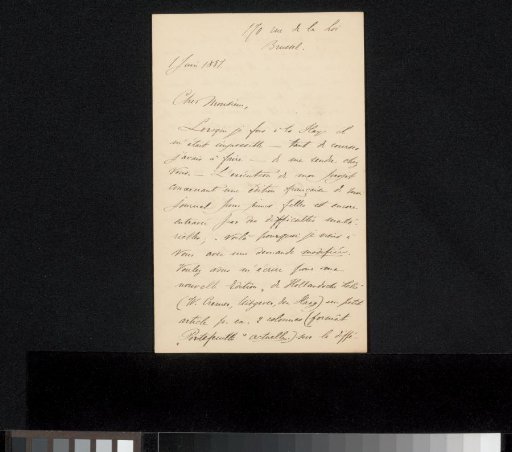 170 rue de la Loi
Bruxel.
1 Juin 1887.
Cher Monsieur,
Lorsque je fus à La Haye il
m'était impossible – tant de courses
j'avais à faire – de me rendre chez
vous. – L'exécution de mon projet
concernant une édition française de mon
journal pour jeunes filles est encore
entravée par des difficultés maté-
rielles; voilà pourquoi je viens à
vous avec une demande modifiée.
Voulez vous m'écrire pour ma
nouvelle édition, de Hollandsche
(W. Cremer, Uitgever, den Haag) un petit
article p. ex. 2 colonnes (format
"Portefeuille" actuelle) sur le